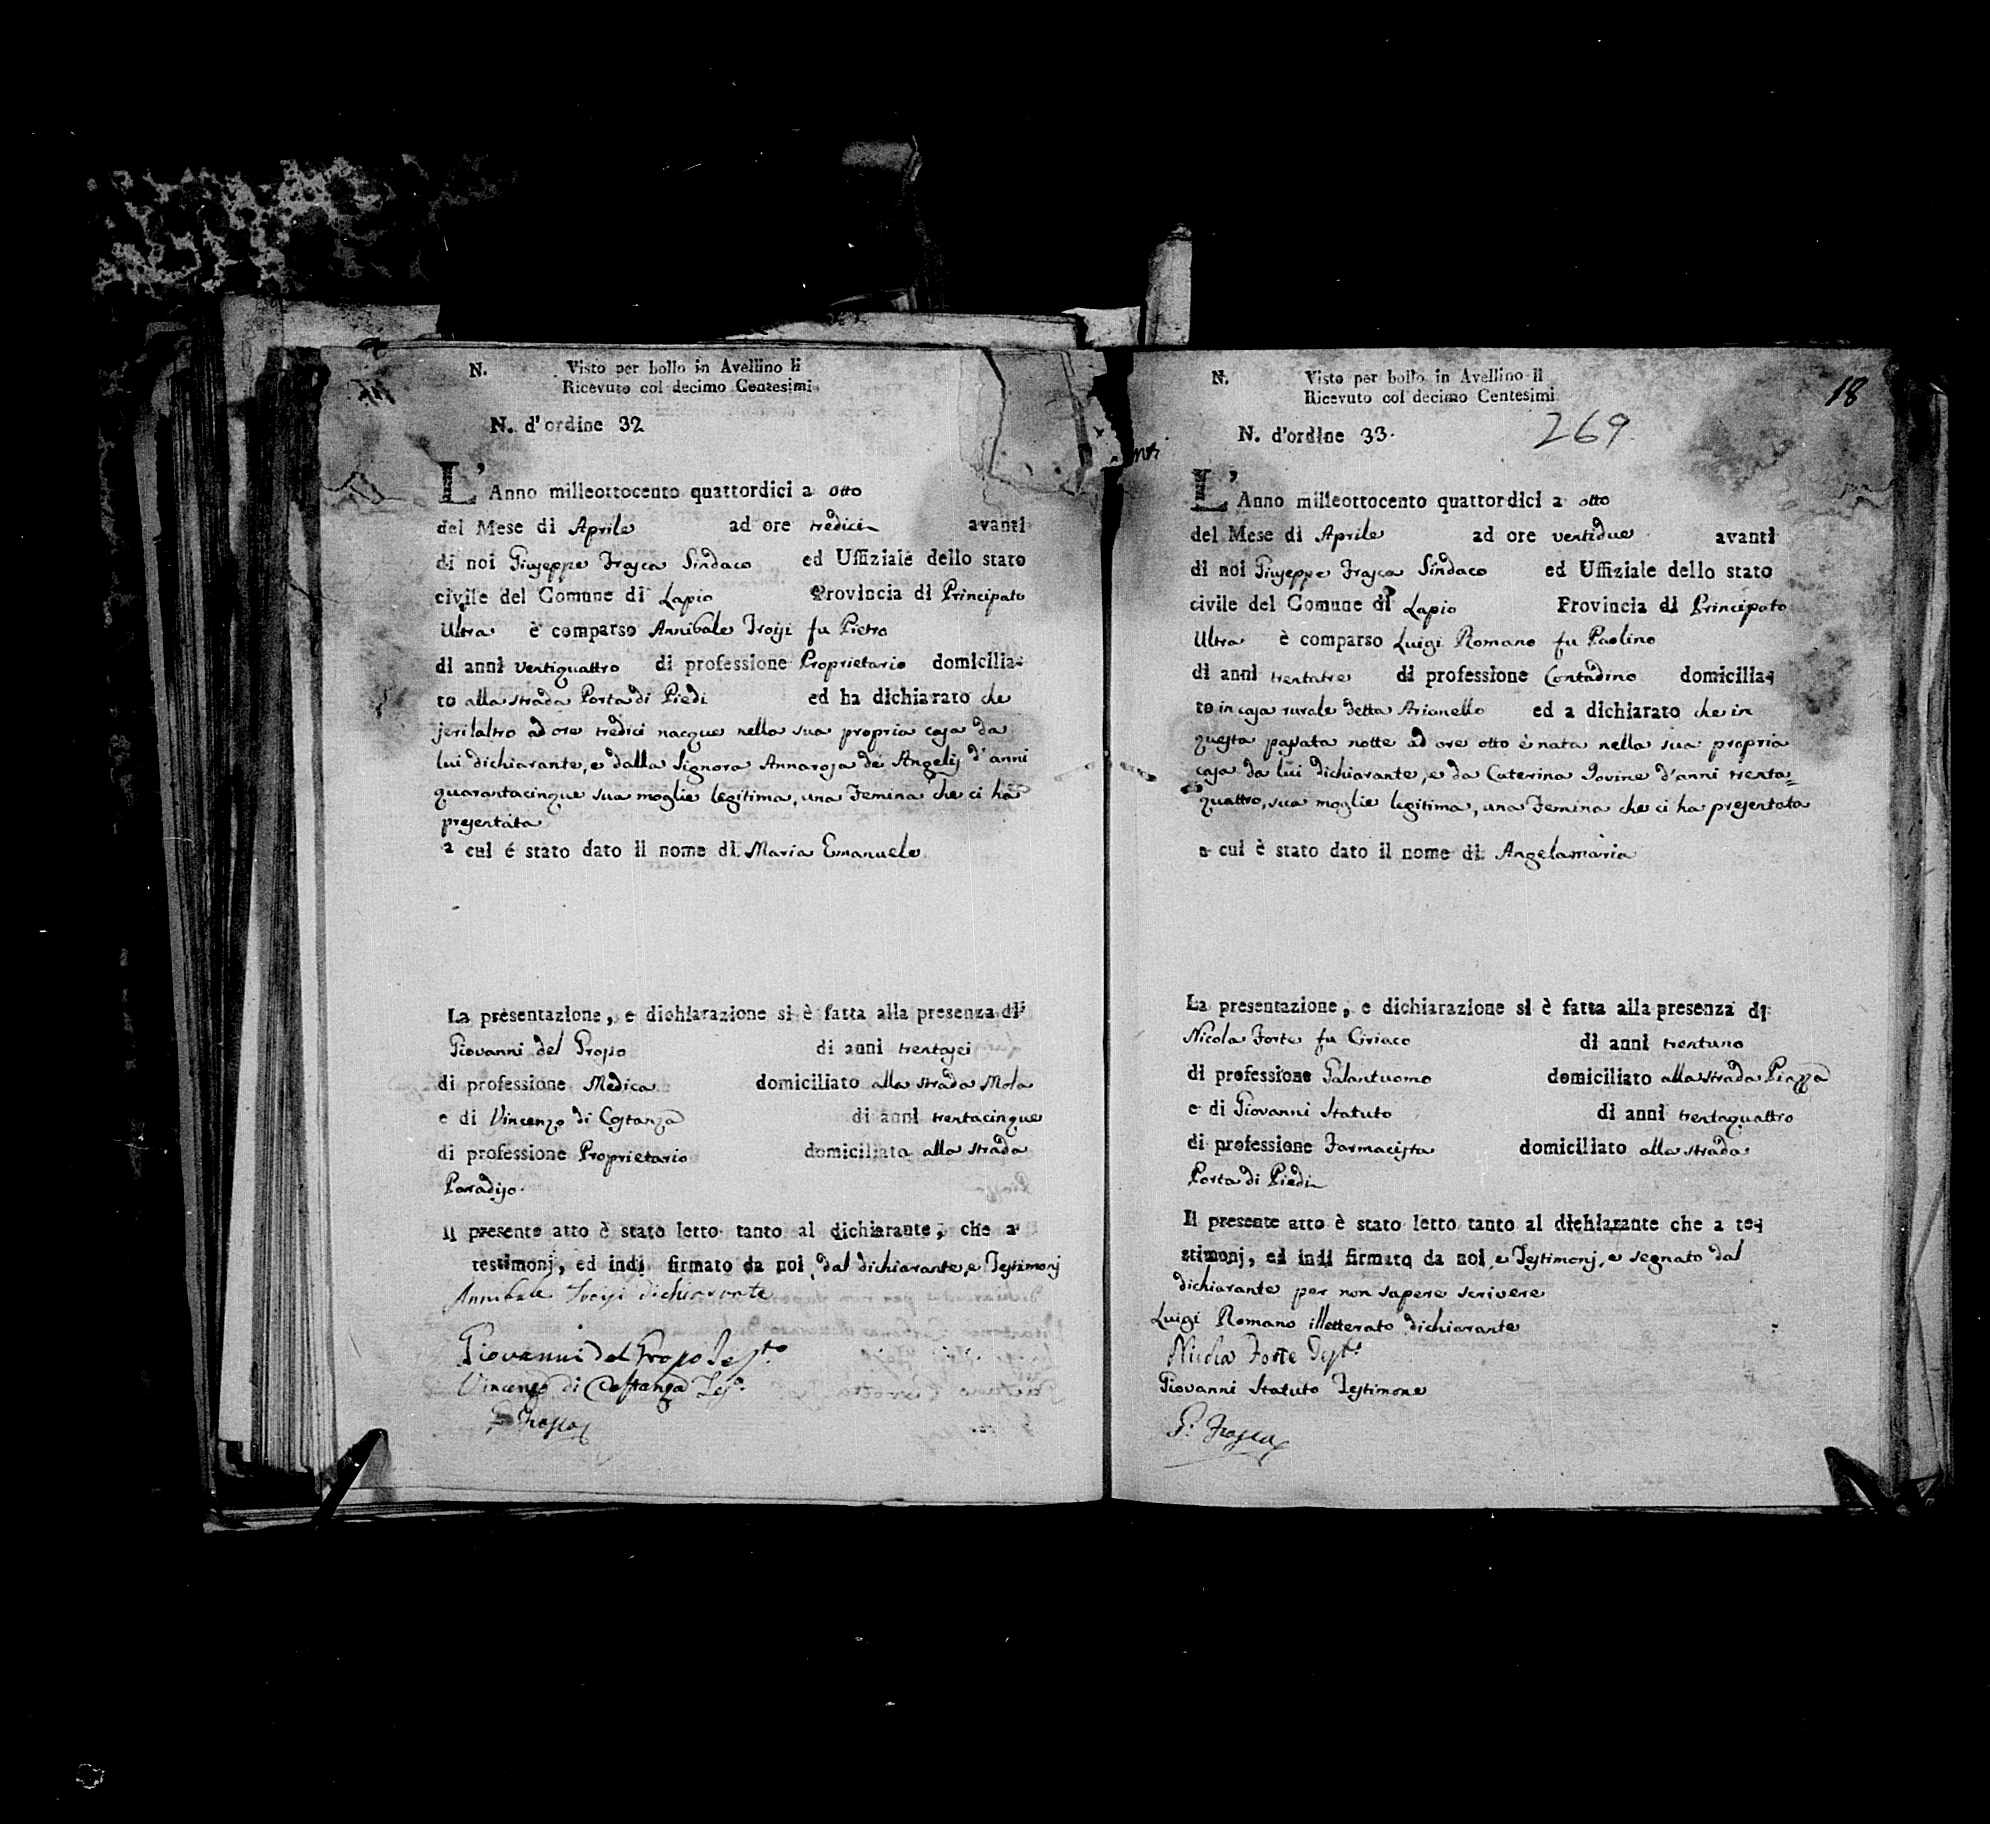 N. Visto per bollo in Avellino li
Ricevuto col decimo Centesimi
N. d'ordine 32
L'Anno milleottocento quattordici a otto
del Mese di Aprile ad ore tredici avanti
di noi Giuseppe Frasca Sindaco ed Uffiziale dello stato
civile del Comune di Lapio Provincia di Principato
Ultra è comparso Annibale Troisi fu Pietro
di anni ventiquattro di professione Proprietario domicilia-
to alla strada Porta di Piedi ed ha dichiarato che
jerilaltro ad ore tredici nacque nella sua propria casa da
lui dichiarante, e dalla Signora Annarosa de Angelis d'anni
quarantacinque sua moglie legitima, una Femina che ci ha
presentata
a cui é stato dato il nome di Maria Emanuele
La presentazione, e dichiarazione si è fatta alla presenza di
Giovanni del Grosso di anni trentasei
di professione Medica domiciliato alla strada Mola
e di Vincenzo di Costanza di anni trentacinque
di professione Proprietario domiciliato alla strada
Paradiso.
Il presente atto è stato letto tanto al dichiarante, che a
testimonj, ed indi firmato da noi, dal dichiarante, e Testimonj
Annibale Troisi dichiarante
Giovanni del Grosso Testo
Vincenzo di Costanza Teso
G. Frasca
18
N. Visto per bollo in Avellino li
Ricevuto col decimo Centesimi
269
N. d'ordine 33.
L'Anno milleottocento quattordici a otto
del Mese di Aprile ad ore ventidue avanti
di noi Giuseppe Frasca Sindaco ed Uffiziale dello stato
civile del Comune di Lapio Provincia di Principato
Ultra è comparso Luigi Romano fu Paolino
di anni trentatre di professione Contadino domicilia-
to in casa rurale detta Arianello ed a dichiarato che in
questa passata notte ad ore otto è nata nella sua propria
casa da lui dichiarante, e da Caterina Iovine d'anni trenta=
quattro, sua moglie legitima, una Femina che ci ha presentata
a cui è stato dato il nome di Angelamaria
La presentazione, e dichiarazione si è fatta alla presenza di
Nicola Forte fu Ciriaco di anni trentuno
di professione Galantuomo domiciliato alla strada Piazza
e di Giovanni Statuto di anni trentaquattro
di professione Farmacista domiciliato alla strada
Porta di Piedi
Il presente atto è stato letto tanto al dichiarante che a te-
stimonj, ed indi firmato da noi, e Testimonj, e segnato dal
dichiarante per non sapere scrivere
Luigi Romano illetterato dichiarante
Nicola Forte Testo
Giovanni Statuto Testimone
G. Frasca